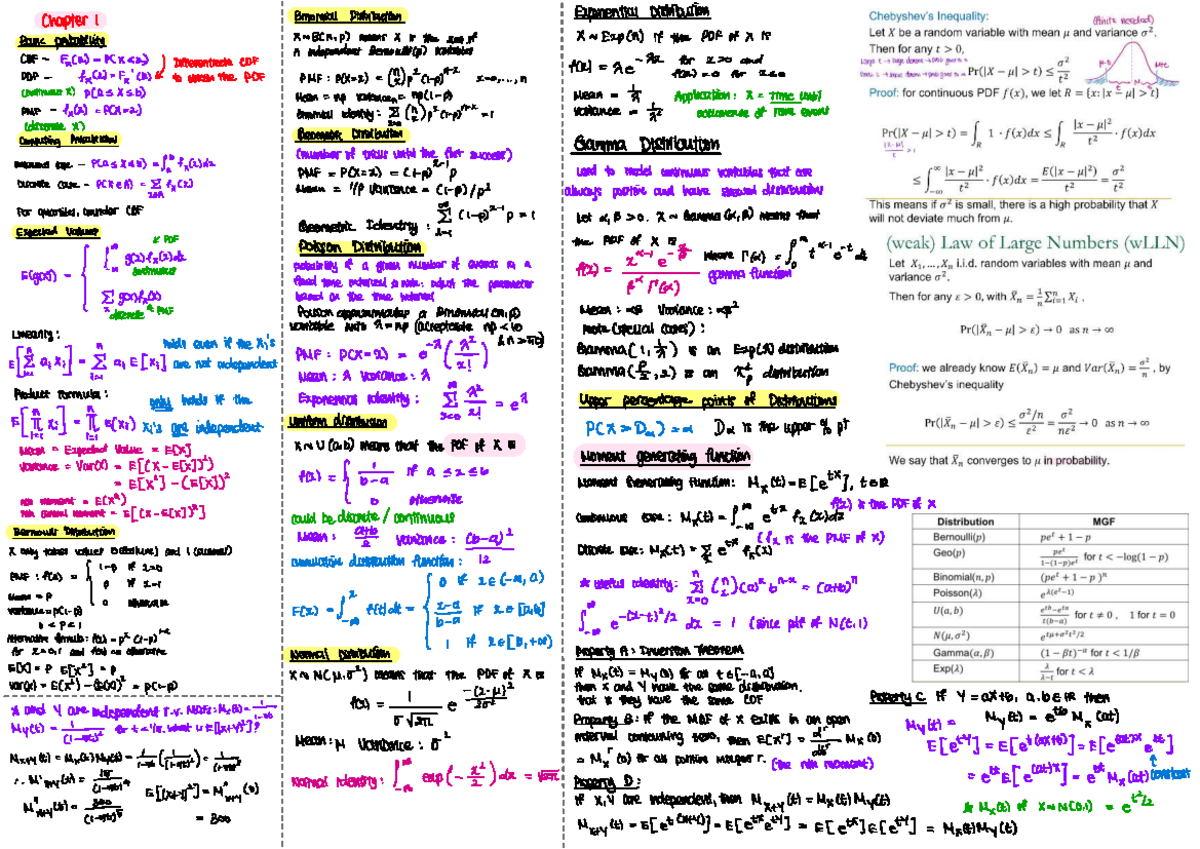 Chapter 1
Basic probability
CDF – Fx(x) = P(X ≤ x)
PDF – fx(x) = Fx'(x)
Differentiate CDF
to obtain the PDF
(continuous X) P(a ≤ X ≤ b)
PMF – fx(x) = P(X=x)
(discrete X)
Computing Probabilities
Continuous case – P(a ≤ X ≤ b) = ∫ₐᵇ fx(x)dx
Discrete case – P(X∈A) = Σ fx(x)
For quantiles, consider CDF
Expected Values
E(g(x)) = { ∫ g(x)fx(x)dx ← PDF
continuous
Σ g(x)fx(x)
discrete ← PMF
Linearity:
E[Σ aᵢXᵢ] = Σ aᵢE[Xᵢ]
holds even if the Xi's
are not independent
Product formula:
E[Π Xᵢ] = Π E(Xᵢ)
only holds if the
Xi's are independent
Mean = Expected Value = E[X]
Variance = Var(X) = E[(X-E[X])²]
= E[X²] – (E[X])²
rth moment = E(X^r)
rth central moment = E[(X-E[X])^r]
Bernoulli Distribution
X only takes values 0 (failure) and 1 (success)
PMF: f(x) = { 1-p if x=0
p if x=1
0 otherwise
Mean = p
Variance = p(1-p)
0 < p < 1
Alternative formula: f(x) = p^x (1-p)^(1-x)
for x=0,1 and f(x)=0 otherwise
E[X] = p E[X²] = p
Var(X) = E(X²) – (E(X))² = p(1-p)
X and Y are independent r.v.
= 800
Binomial Distribution
X ~ B(n,p) means X is the sum of
n independent Bernoulli(p) variables
PMF: P(X=x) = (n x) p^x (1-p)^(n-x) x=0,...,n
Mean = np Variance = np(1-p)
Binomial identity: Σ (n x) p^x (1-p)^(n-x) = 1
Geometric Distribution
(number of trials until the first success)
PMF = P(X=x) = (1-p)^(x-1) p
Mean = 1/p Variance = (1-p)/p²
Geometric Identity: Σ (1-p)^(x-1) p = 1
Poisson Distribution
probability of a given number of events in a
fixed time interval
based on the time interval
Poisson approximates a Binomial(n,p)
variable with λ=np (acceptable np < 10
PMF: P(X=x) = e^-λ (λ^x / x!)
Mean: λ Variance: λ
Exponential identity: Σ λ^x / x! = e^λ
Uniform distribution
X ~ U(a,b) means that the PDF of X is
f(x) = { 1/(b-a) if a ≤ x ≤ b
0 otherwise
could be discrete / continuous
Mean: (a+b)/2 Variance: (b-a)²/12
Cumulative distribution function:
F(x) = ∫ f(t)dt = { 0 if x∈(-∞, a)
(x-a)/(b-a) if x∈[a,b]
1 if x∈[b,+∞)
Normal Distribution
X ~ N(μ,σ²) means that the PDF of X is
f(x) = 1/(σ√2π) e^(-(x-μ)²/2σ²)
Mean: μ Variance: σ²
Normal identity: ∫ exp(-x²/2)dx = √2π
Exponential Distribution
X ~ Exp(λ) if the PDF of X is
f(x) = λe^-λx for x>0 and
f(x)=0 for x≤0
Mean = 1/λ
Variance = 1/λ²
Application: X = Time until
occurrence of some event
Gamma Distribution
used to model continuous variables that are
always positive and have skewed distributions
Let α,β > 0. X ~ Gamma(α,β) means that
the PDF of X is
f(x) = x^(α-1) e^(-x/β) / β^α Γ(α)
where Γ(α) = ∫ t^(α-1) e^-t dt
gamma function
Mean: αβ Variance: αβ²
Note (special cases):
Gamma(1, 1/λ) is an Exp(λ) distribution
Gamma(p/2, 2) is an χ²p distribution
Upper percentage points of Distributions
P(X > Dα) = α Dα is the upper % pt
Moment generating function
Moment Generating Function: Mx(t) = E[e^tX], t∈R
f(x) is the PDF of X
Continuous case: Mx(t) = ∫ e^tx fx(x)dx
(fx is the PMF of X)
Discrete case: Mx(t) = Σ e^tx fx(x)
* useful identity: Σ (n x)(a)^x b^(n-x) = (a+b)^n
∫ e^(-(x-t)²/2) dx = 1 (since pdf of N(t,1)
Property A: Inversion Theorem
If Mx(t) = My(t) for all t∈[-a,a]
then X and Y have the same distribution.
that is they have the same CDF
Property B: If the MGF of X exists in an open
interval containing zero, then E[X^r] = d^r/dt^r Mx(0)
= Mx^r(0) for all positive integer r. (the rth moment)
Property D:
If X,Y are independent, then Mx+y(t) = Mx(t)My(t)
Mx+y(t) = E[e^t(X+Y)] = E[e^tX e^tY] = E[e^tX]E[e^tY] = Mx(t)My(t)
Chebyshev's Inequality:
(finite needed)
Let X be a random variable with mean μ and variance σ².
Then for any t > 0,
Pr(|X − μ| > t) ≤ σ²/t²
Proof: for continuous PDF f(x), we let R = {x: |x − μ| > t}
Pr(|X − μ| > t) = ∫R 1 · f(x)dx ≤ ∫R |x − μ|²/t² · f(x)dx
≤ ∫ |x − μ|²/t² · f(x)dx = E(|X − μ|²)/t² = σ²/t²
This means if σ² is small, there is a high probability that X
will not deviate much from μ.
(weak) Law of Large Numbers (wLLN)
Let X₁, ..., Xₙ i.i.d. random variables with mean μ and
variance σ².
Then for any ε > 0, with X̄ₙ = 1/n Σⁿᵢ₌₁ Xᵢ ,
Pr(|X̄ₙ − μ| > ε) → 0 as n → ∞
Proof: we already know E(X̄ₙ) = μ and Var(X̄ₙ) = σ²/n , by
Chebyshev's inequality
Pr(|X̄ₙ − μ| > ε) ≤ (σ²/n)/ε² = σ²/nε² → 0 as n → ∞
We say that X̄ₙ converges to μ in probability.
Distribution MGF
Bernoulli(p) pe^t + 1 − p
Geo(p) pe^t/(1−(1−p)e^t) for t < −log(1 − p)
Binomial(n, p) (pe^t + 1 − p)^n
Poisson(λ) e^λ(e^t−1)
U(a, b) (e^tb−e^ta)/t(b−a) for t ≠ 0 , 1 for t = 0
N(μ, σ²) e^(tμ+σ²t²/2)
Gamma(α, β) (1 − βt)^−α for t < 1/β
Exp(λ) λ/(λ−t) for t < λ
Property C If Y = aX+b, a,b∈R then
My(t) = My(t) = e^tb Mx(at)
E[e^tY] = E[e^t(aX+b)] = E[e^(at)X e^tb]
= e^tb E[e^(at)X] = e^tb Mx(at) constant
* Mx(t) if X~N(0,1) = e^(t²/2)